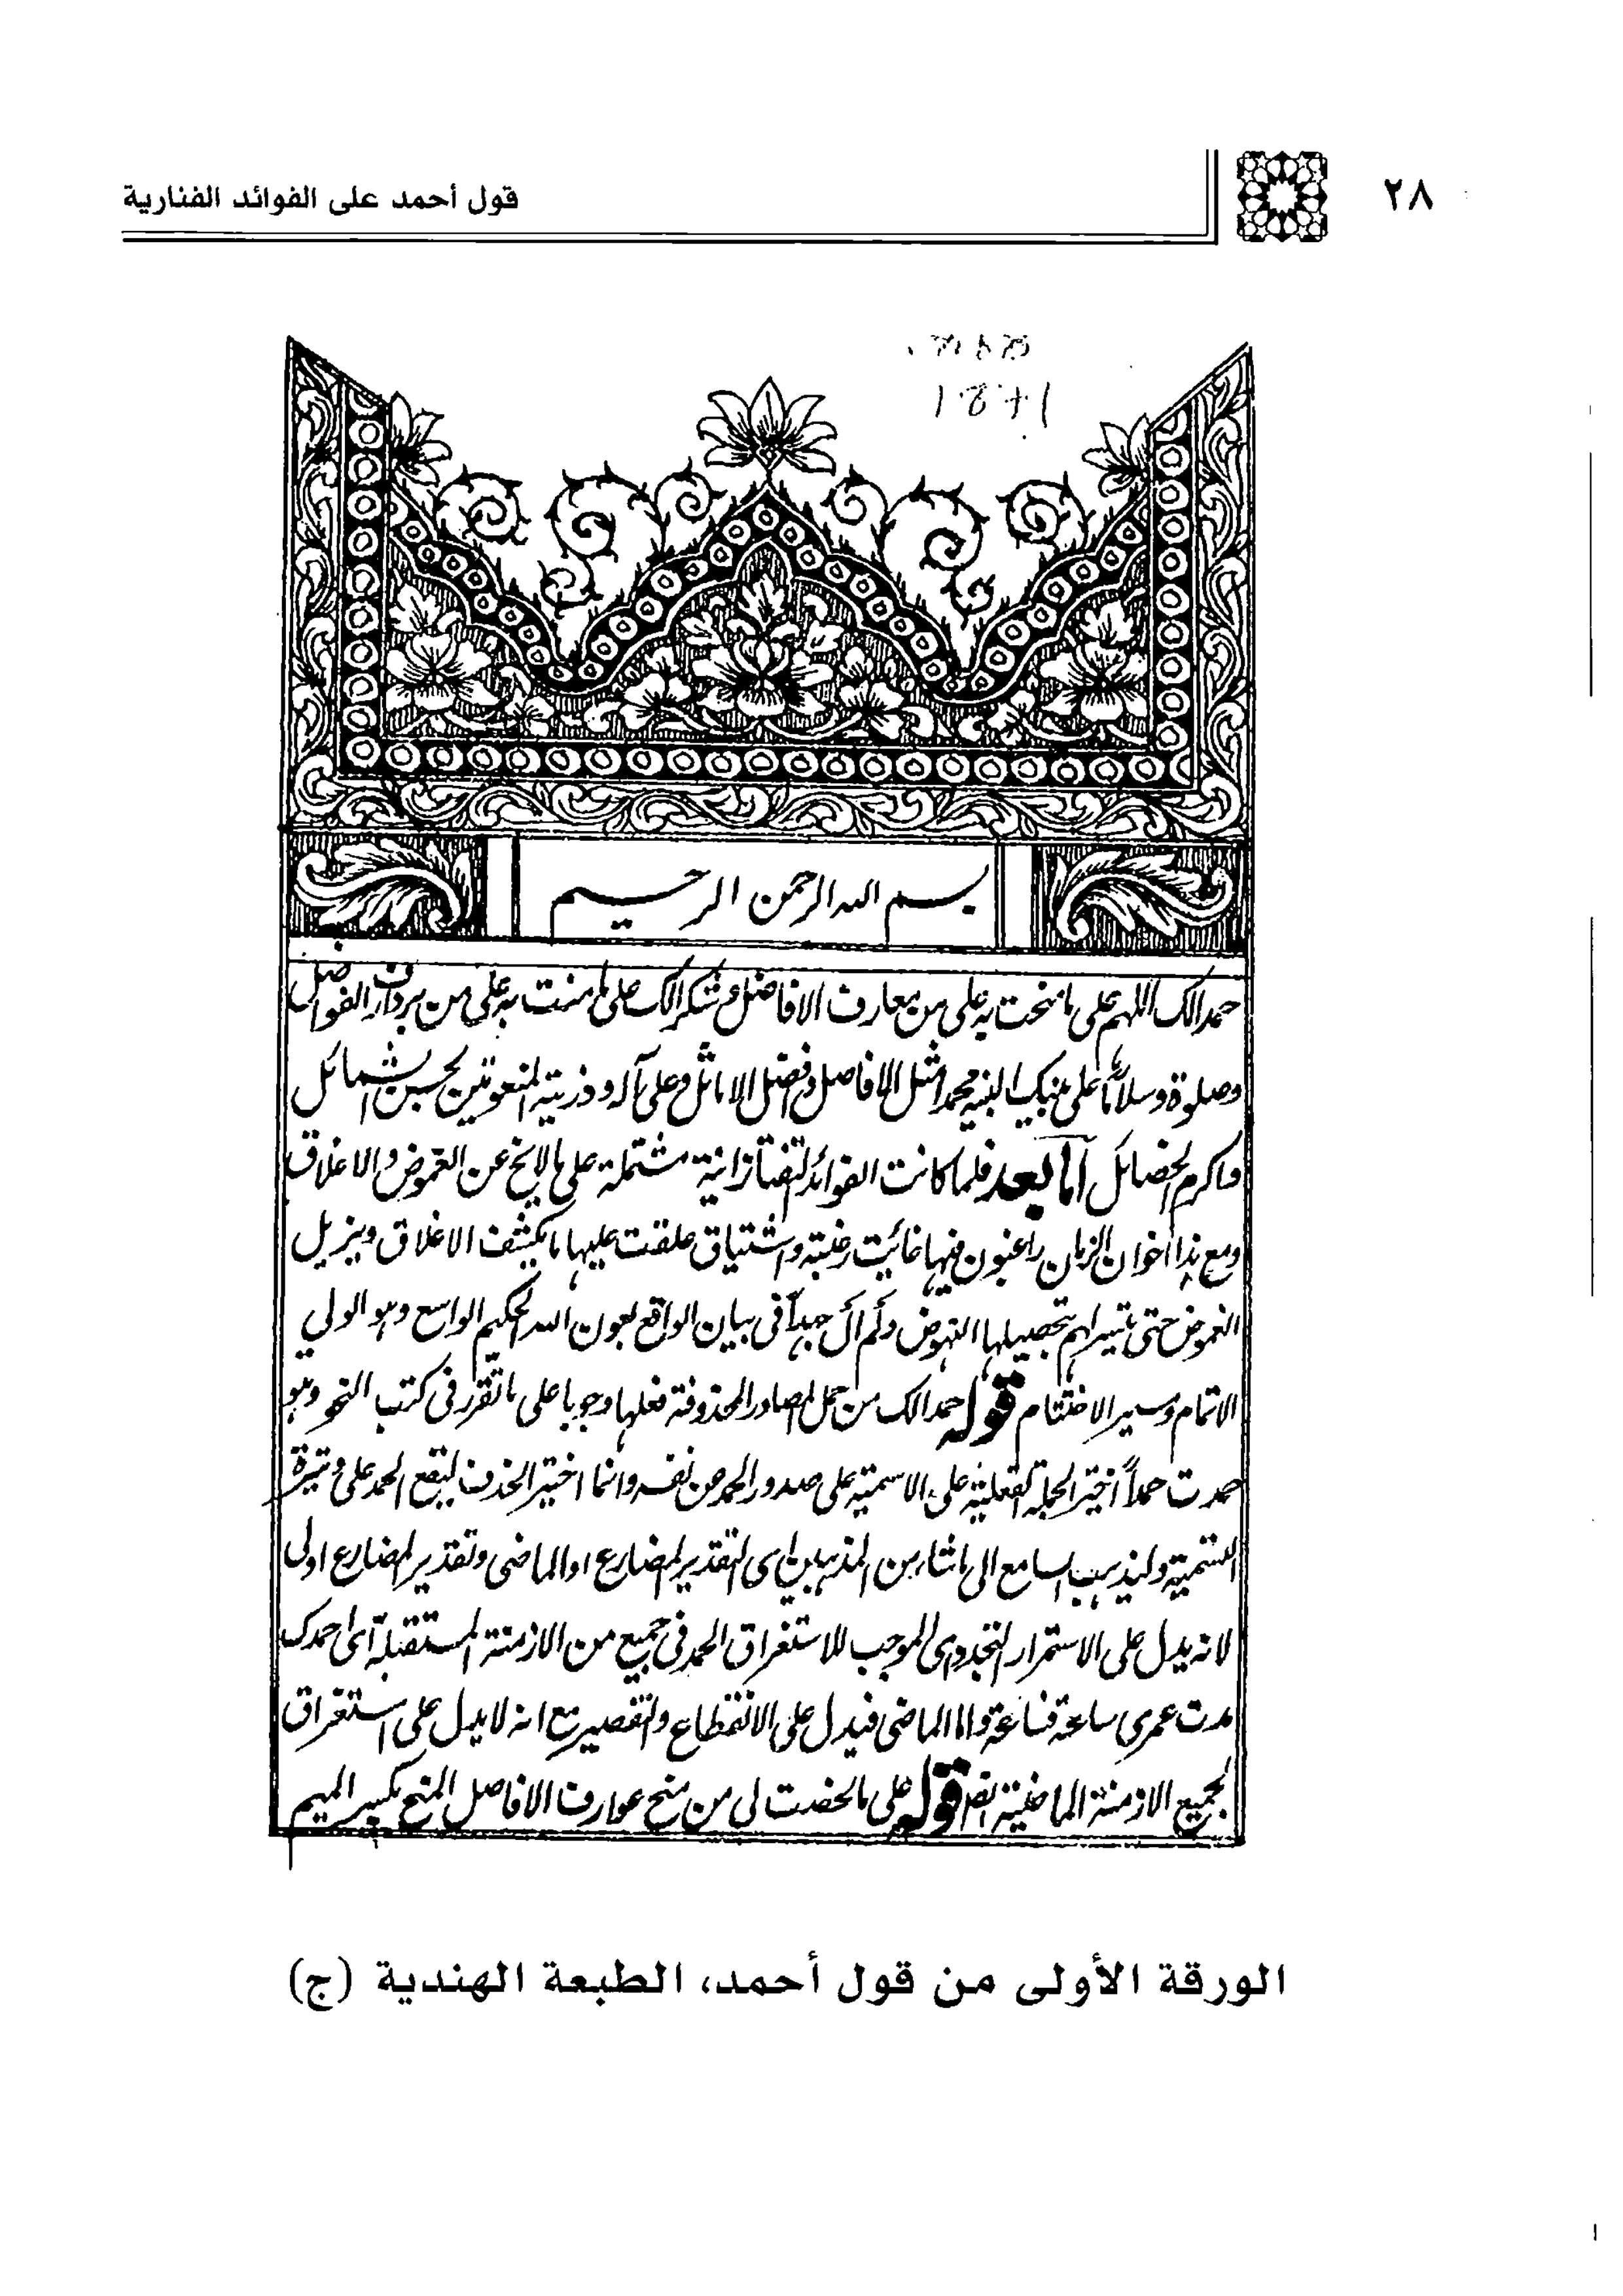 ٢٨
قول أحمد على الفوائد الفنارية
بسم الله الرحمن الرحيم
حمدا لك اللهم على ما منحت به على من معارف الافاضل و شكرا لك على ما مننت به على من الفواضل
وصلوة وسلاما على محمد امثل الافاضل و افضل الاماثل وعلى آله و ذريته المنعوتين بحسن الشمائل
واكرم الخصائل اما بعد فلما كانت الفوائد التفتازانية مشتملة على ما لا يخ عن الغموض والاغلاق
ومع هذا اخوان الزمان راغبون فيها غايت رغبة واشتياق علقت عليها ما يكشف الاغلاق ويزيل
الغموض حتى تيسر لهم بتحصيلها النهوض ولم آل جهدا فى بيان الواقع بعون الله الحكيم الواسع وهو الولي
الاتمام وميسر الاختتام قوله حمدا لك من جملة المصادر المحذوفة فعلها وجوبا على ما تقرر فى كتب النحو وهو
حمدت حمداً اختير الجملة الفعلية على الاسمية على صدور الحمد من نفسه وانما اختير الحذف ليقع الحمد على وتيرة
التسمية وليذهب السامع الى ما شاء من المذهبين اى التقدير المضارع او الماضى وتقدير المضارع اولى
لانه يدل على الاستمرار التجددى الموجب للاستغراق الحمد فى جميع من الازمنة المستقبلة اى احمدك
مدت عمرى ساعة فساعة واما الماضى فيدل على الانقطاع والتقصير مع انه لا يدل على استغراق
لجميع الازمنة الماضية قوله على ما لخصت لى من منح عوارف الافاضل المنح بكسر الميم
الورقة الأولى من قول أحمد، الطبعة الهندية (ج)